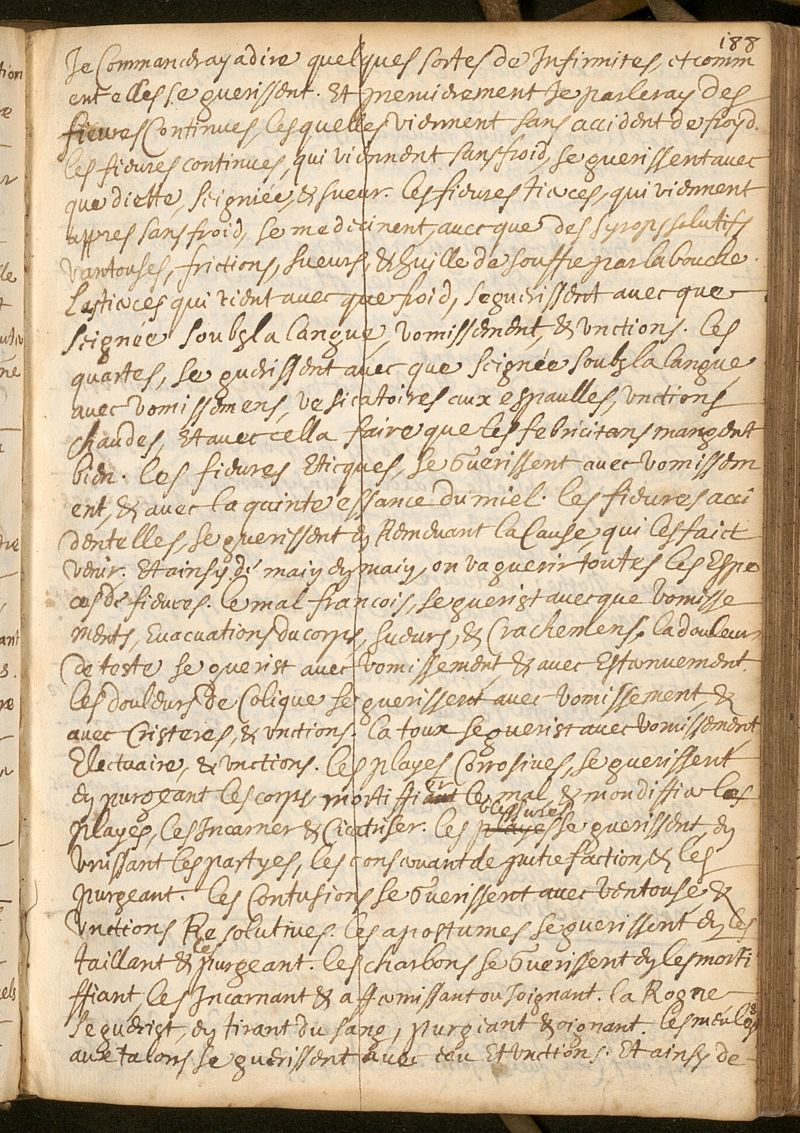 188
Je Commanceray a dire quelques sortes de Infirmites, et comm
ent elles se guerissent. Et premierement Je parleray des
fieures Continues, lesquelles viennent sans accident de froyd.
les fieures continues, qui viennent sans froid, se guerissent avec
que diette, seigniée, & sueur. les fieures tierces, qui viennent
appres sans froid, se medicinent avecque des syrops solutifs
Vantouses, frictions, sueurs, & huille de souffre par la bouche.
Les tierces qui vient avecque froid, se guerissent avecque
seignée soubz la langue, vomissement, & vnctions. les
quartes, se guerissent avecque seignée soubz la langue
avec vomissemens, vesicatoires aux espaulles, vnctions
chaudes, Et avec cella faire que les febricitans mangent
bien. les fieures Eticques, se Guerissent avec vomissem
ent, & avec la quinte essance du miel. les fieures acci
dentelles, se guerissent en Remevant la Cause, qui les faict
venir. Et ainsy de main en main, on va guerir toutes les Espe
ces de fieures. le mal francois, se guerist avecque Vomisse
ments, Evacuations du corps, sueurs, & Crachemens. la douleur
de teste se guerist avec vomissement, & avec Estarnuement.
les douleurs de Colique se guerissent avec vomissement, &
avec Cristeres, & vnctions. la toux se guerist avec vomissement
Electuaire, & vnctions. les playes Corrosives, se guerissent
en purgeant les corps, mortiffier le mal, & mondiffier les
playes, les Incarner & Cicatriser. les blessures se guerissent, en
vnissant les partyes, les conservant de putrefaction, & les
purgeant. les Contusions se Guerissent avec ventouse &
Vnctions Resolutives. les apostumes se guerissent en les
taillant & les purgeant. les charbons se Guerissent en les morti
ffiant les Incarnant & affermissant ou soignant. la Rogne
se guerist, en tirant du sang, purgeant & oignant. les meules
aux talons se guerissent avec eau Et vnctions. Et ainsy de